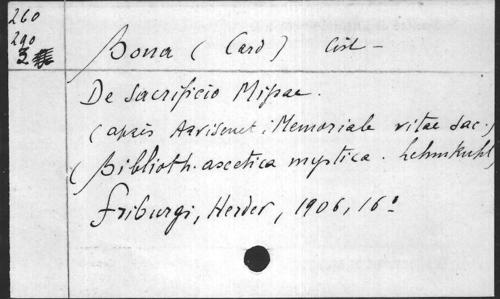 260
290
3
Bona (Card) Cist -
De Sacrificio Missae.
(après Arvisenet: Memoriale vitae sac.)
(Biblioth. ascetica mystica. Lehmkuhl)
Friburgi, Herder, 1906, 16º